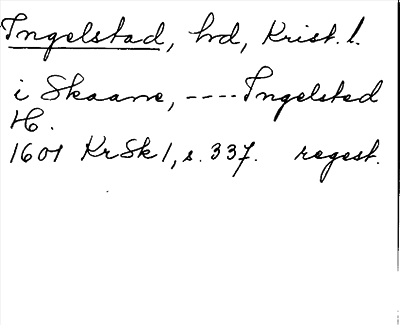 Ingelstad, hrd, Krist. l.
i Skaane, ---- Ingelsted
H.
1601 KrSk 1, s. 337. regest.